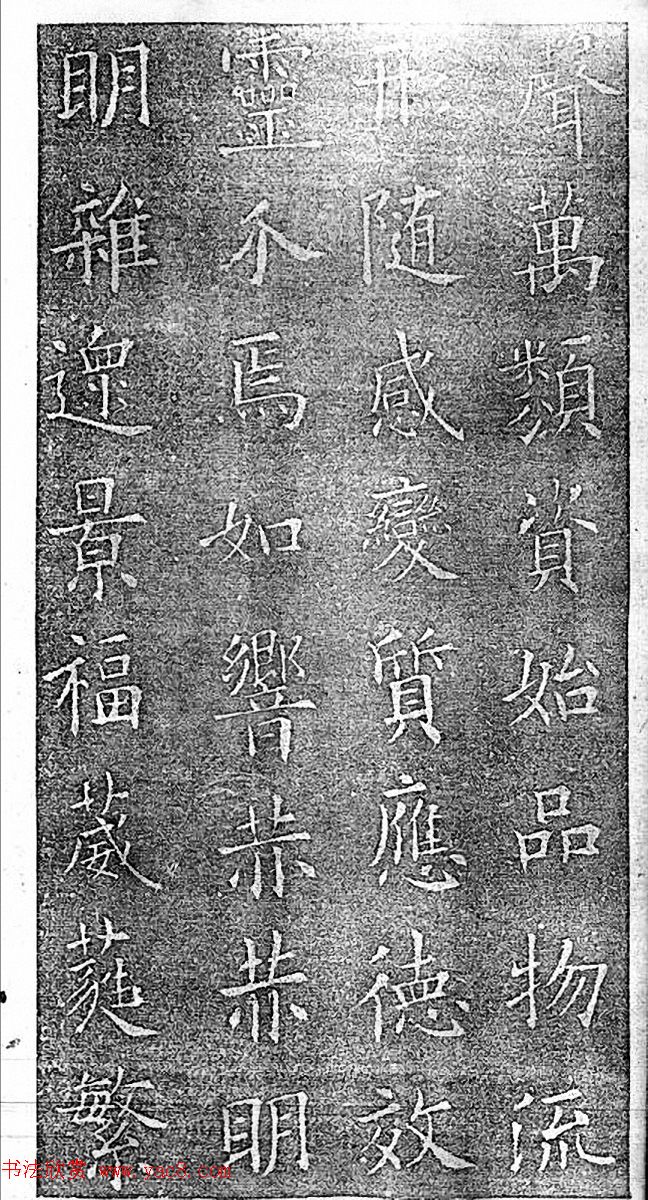 聲萬類資始品物流
形随感變質應德效
靈介焉如響赫赫明
明雜遝景福葳蕤繁
书法欣赏 www.yac8.com